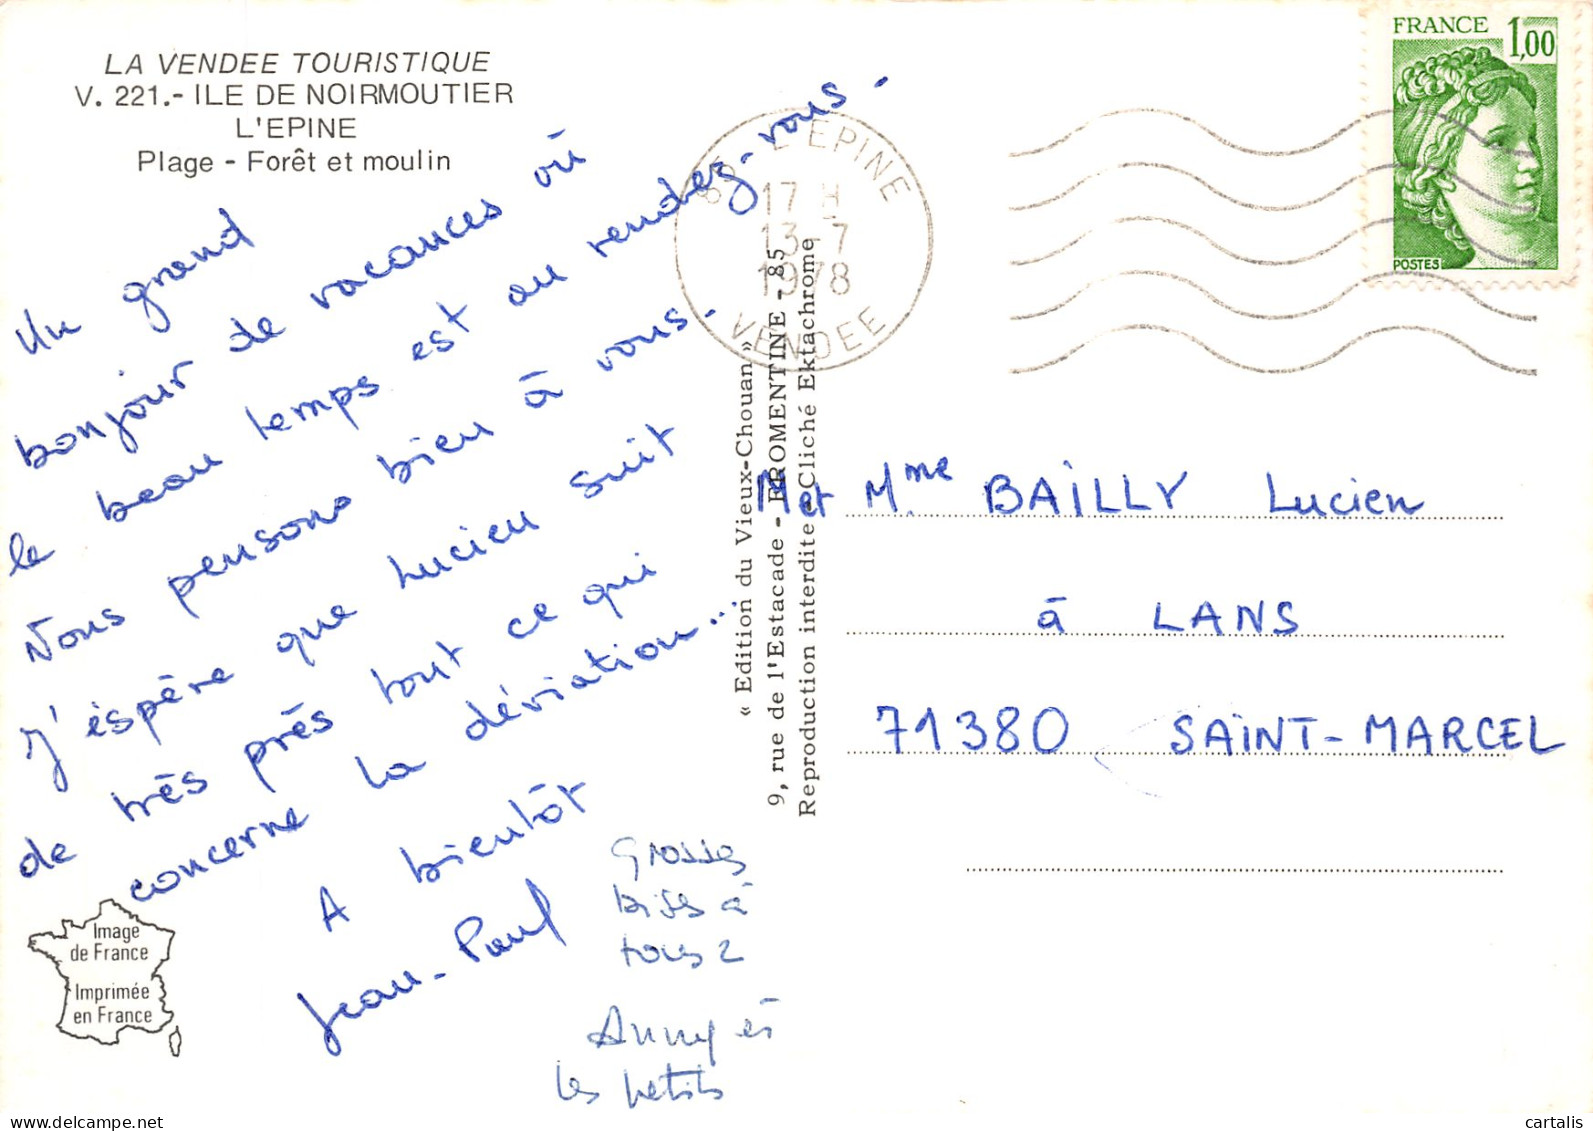 LA VENDEE TOURISTIQUE
V. 221.- ILE DE NOIRMOUTIER
L'EPINE
Plage - Forêt et moulin
Un grand
bonjour de vacances où
le beau temps est au rendez-vous.
Nous pensons bien à vous.
J'éspère que Lucien suit
de très près tout ce qui
concerne la déviation...
A bientôt
Jean-Paul
Grosses
bises à
tous 2
Anny et
les petits
Image
de France
Imprimée
en France
« Edition du Vieux-Chouan »
9, rue de l'Estacade - FROMENTINE - 85
Reproduction interdite - Cliché Ektachrome
85 L'EPINE
17 H
13-7
1978
VENDEE
FRANCE 1,00
POSTES
M et Mme BAILLY Lucien
à LANS
71380 SAINT-MARCEL
cartalis